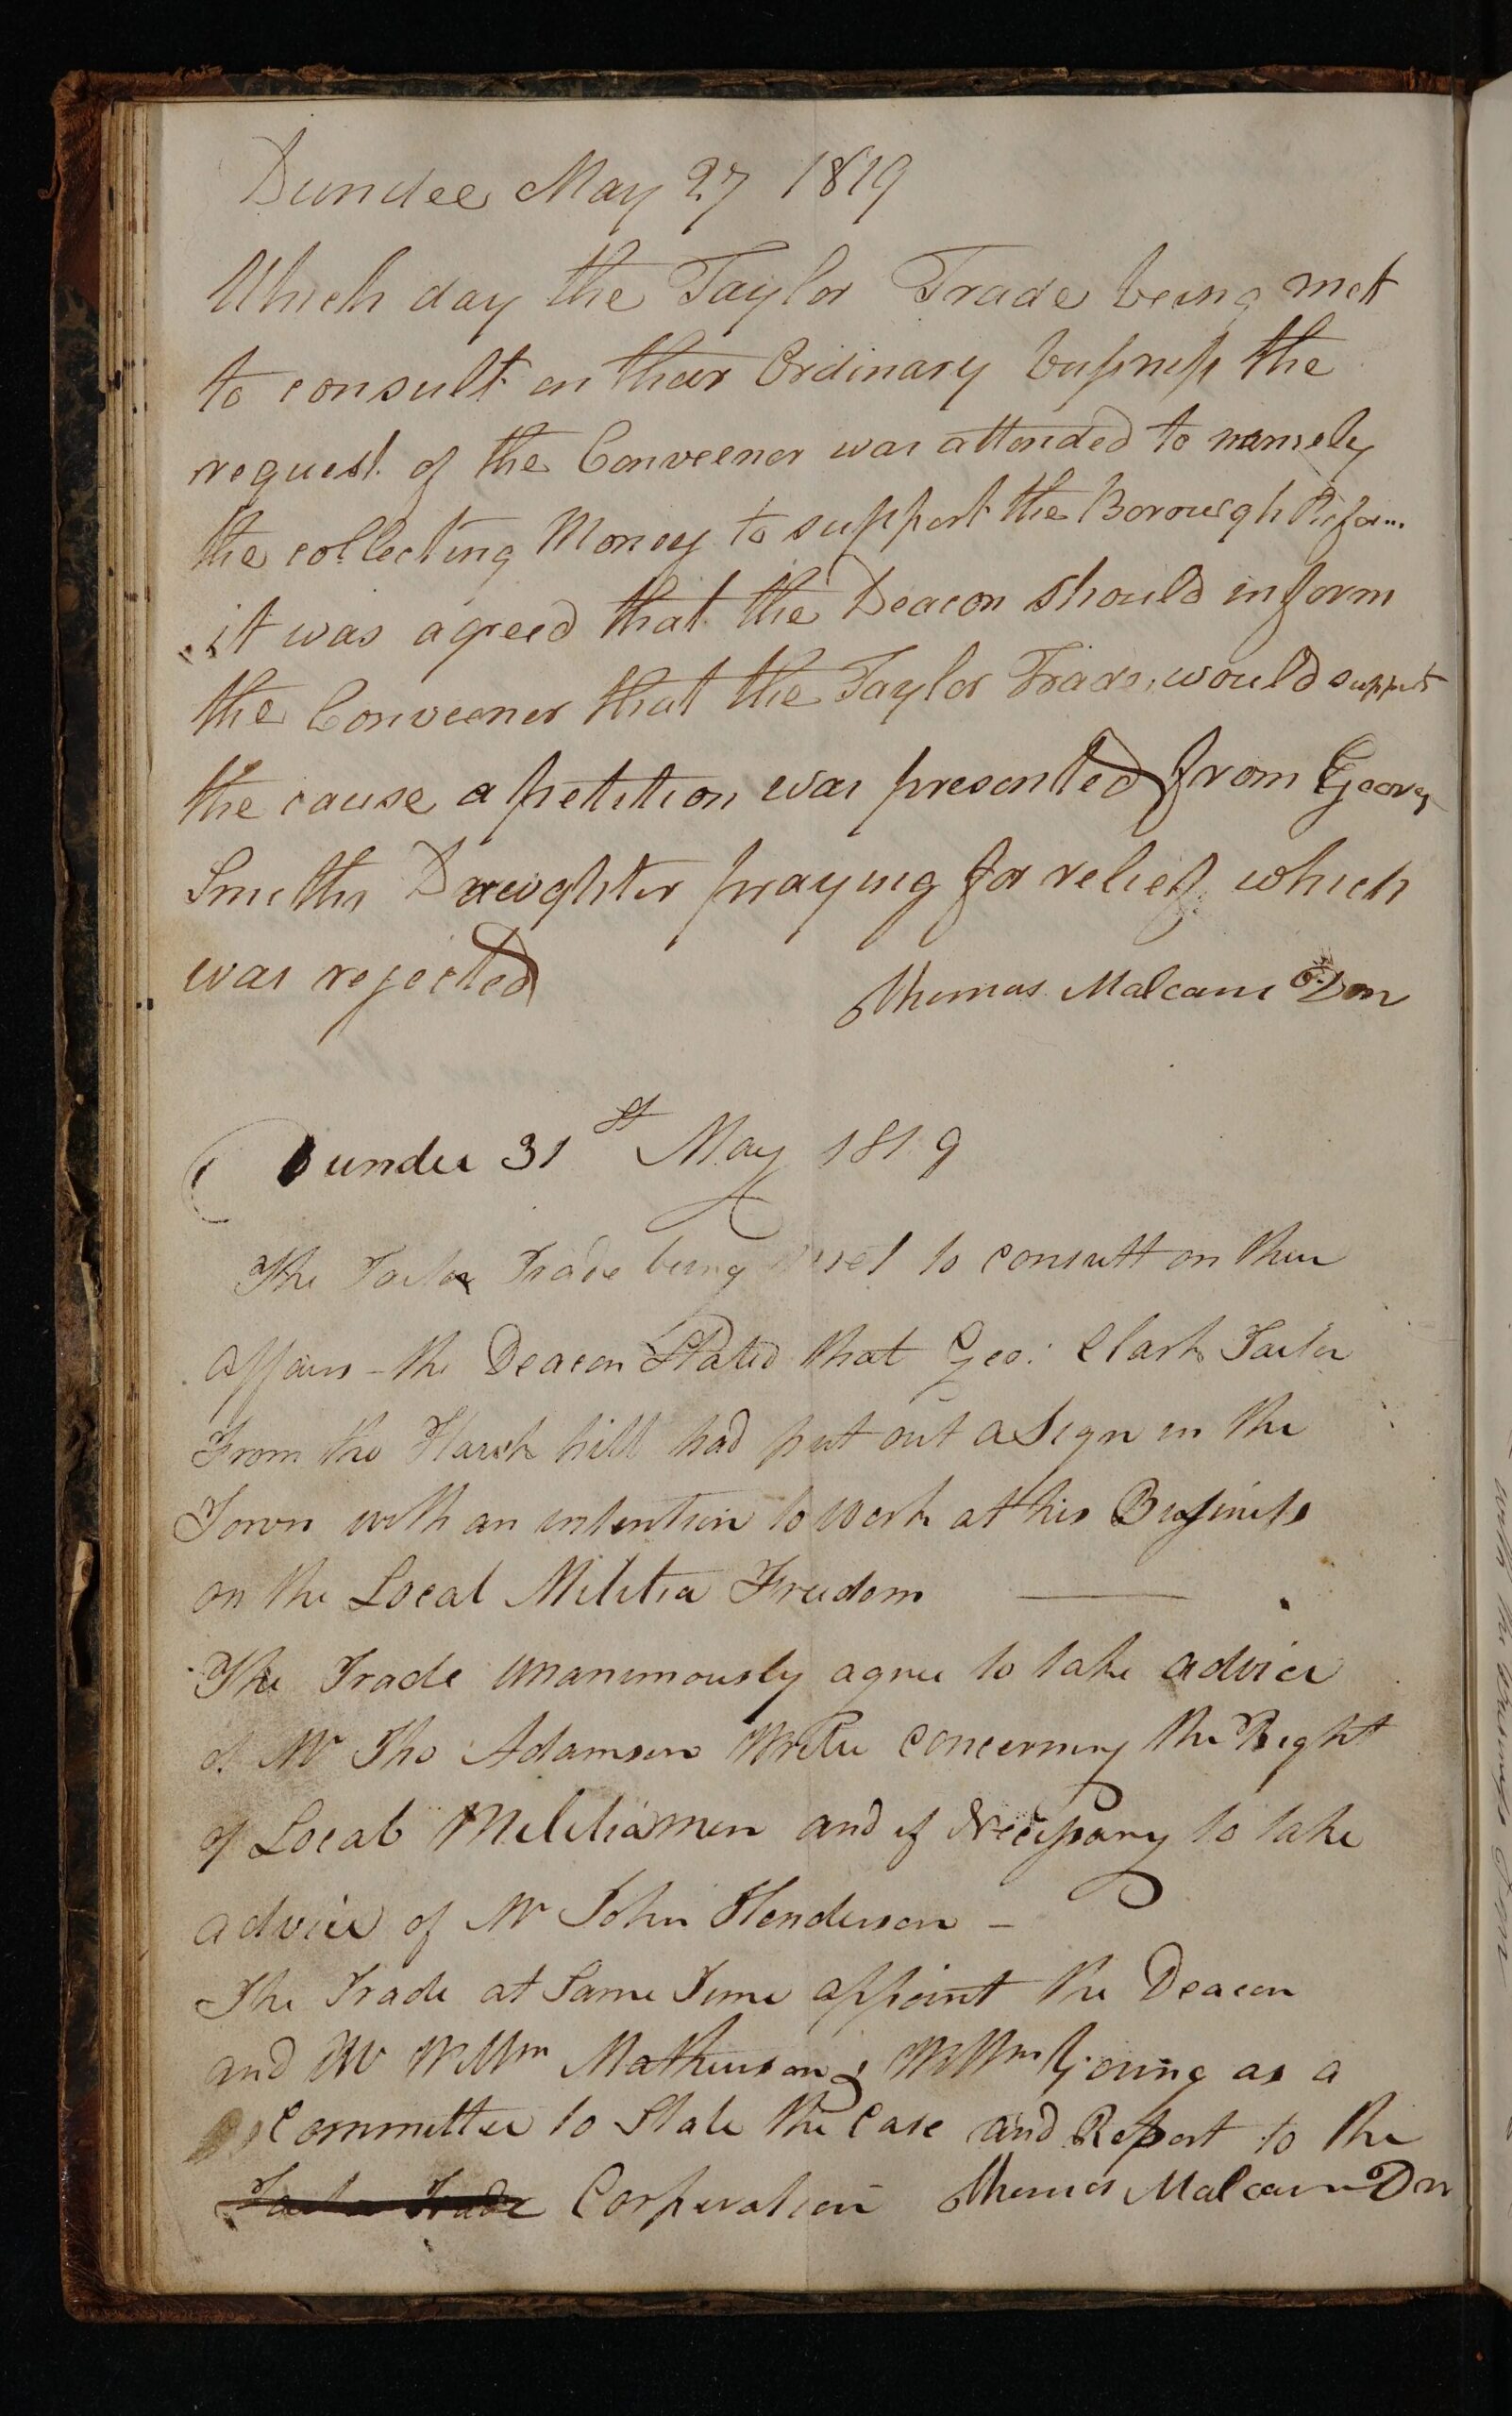 Dundee May 27 1819
Which day the Taylor Trade being met
to consult on their Ordinary bussness the
request of the Conveener was attended to namely
the collecting Money to support the Borough Reform
it was agreed that the Deacon should inform
the Conveener that the Taylor Trade would support
the cause a petition was presented from Georg
Smiths Daughter praying for relief which
was rejected
Thomas Malcam Dn
Dundee 31st May 1819
The Tailor Trade being met to consult on their
affairs - the Deacon Stated that Geo: Clark Tailor
From the Hawkhill had put out a Sign in the
Town with an intention to work at his Business
on the Local Militia Freedom
The Trade unanimously agree to take advice
of Mr Tho Adamson Writer concerning the Right
of Local Militiamen and if Necessary to take
advice of Mr John Henderson -
The Trade at Same Time appoint the Deacon
and Mr Willm Mathewson & Willm Young as a
Committee to State the Case and Report to the
Tailor Trade Corporation Thomas Malcam Dn